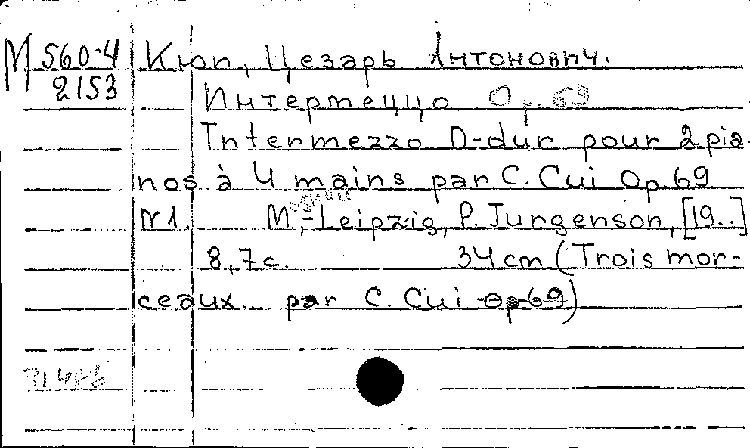 М 560-4 Кюи, Цезарь Антонович.
2153
Интермеццо Op. 69
Intermezzo D-dur pour 2 pia-
nos à 4 mains par C. Cui Op. 69
N 1. М.-Leipzig, P. Jurgenson, [19..]
8, 7 с. 34 cm (Trois mor-
ceaux par C. Cui Op 69)